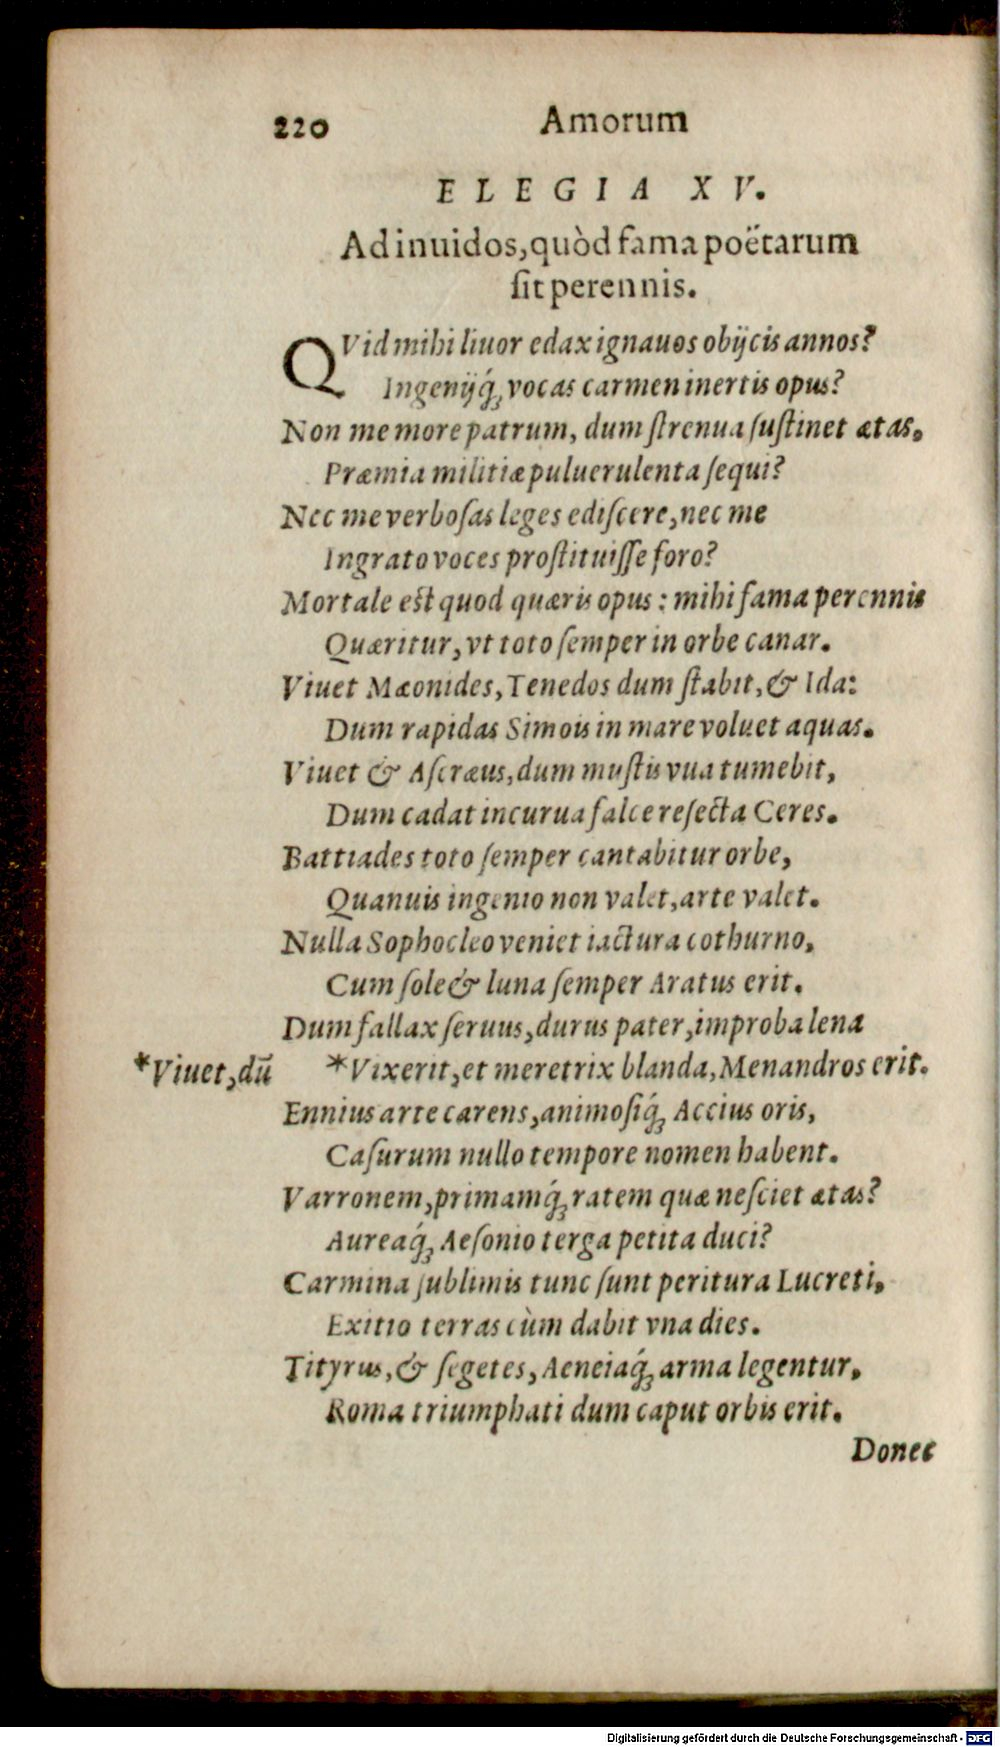 220 Amorum
ELEGIA XV.
Ad inuidos, quòd fama poëtarum
ſit perennis.
QVid mihi liuor edax ignauos obijcis annos?
Ingenijq́; vocas carmen inertis opus?
Non me more patrum, dum ſtrenua ſuſtinet ætas,
Præmia militiæ puluerulenta ſequi?
Nec me verboſas leges ediſcere, nec me
Ingrato voces proſtituiſſe foro?
Mortale est quod quæris opus: mihi fama perennis
Quæritur, vt toto ſemper in orbe canar.
Viuet Mæonides, Tenedos dum ſtabit, & Ida:
Dum rapidas Simois in mare voluet aquas.
Viuet & Aſcræus, dum muſtis vua tumebit,
Dum cadat incurua falce reſecta Ceres.
Battiades toto ſemper cantabitur orbe,
Quanuis ingenio non valet, arte valet.
Nulla Sophocleo veniet iactura cothurno,
Cum ſole & luna ſemper Aratus erit.
Dum fallax ſeruus, durus pater, improba lena
*Viuet, dū *Vixerit, et meretrix blanda, Menandros erit.
Ennius arte carens, animoſiq́; Accius oris,
Caſurum nullo tempore nomen habent.
Varronem, primamq́; ratem quæ neſciet ætas?
Aureaq́; Aeſonio terga petita duci?
Carmina ſublimis tunc ſunt peritura Lucreti,
Exitio terras cùm dabit vna dies.
Tityrus, & ſegetes, Aeneiaq́; arma legentur,
Roma triumphati dum caput orbis erit.
Donec
Digitalisierung gefördert durch die Deutsche Forschungsgemeinschaft - DFG